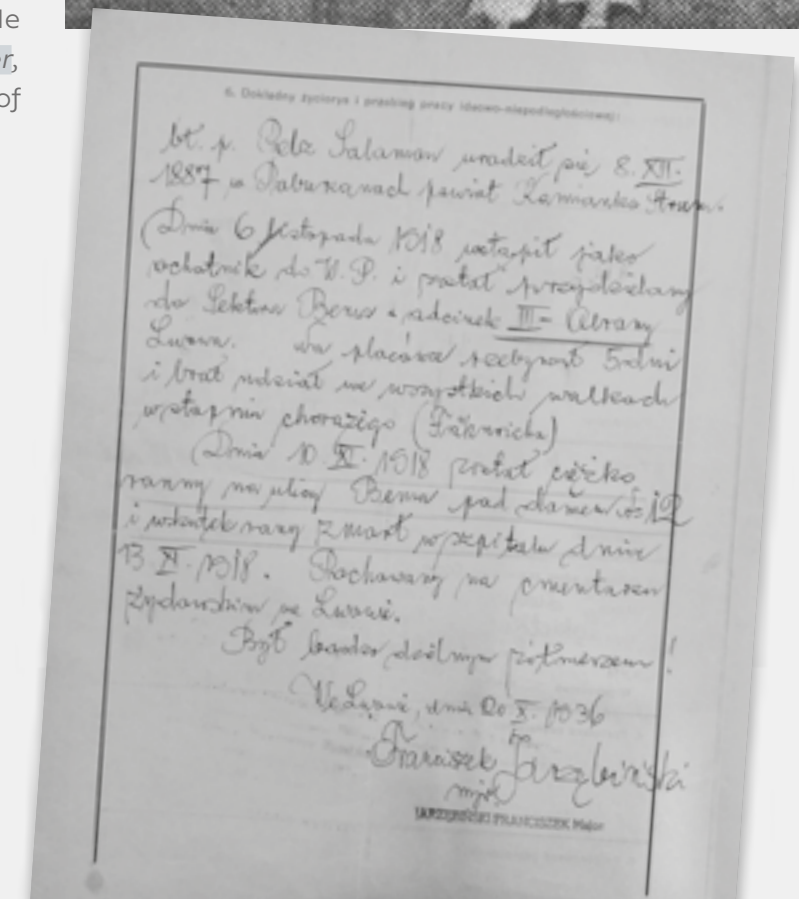 le
er,
of
6. Dokładny życiorys i przebieg pracy ideowo-niepodległościowej:
bł. p. Salamon urodził się 8. XII.
1887 w powiat Kamionka Strum.
Dnia 6 listopada 1918 wstąpił jako
ochotnik do W. P. i został przydzielony
do Sektora Bema odcinek III- Obrony
Lwowa. na placówce 5 dni
i brał udział we wszystkich walkach
w stopniu chorążego (Fähnricha)
Dnia 10 XI. 1918 został ciężko
ranny na ulicy Bema pod domem 12
i wskutek rany zmarł w szpitalu dnia
13 XI. 1918. Pochowany na cmentarzu
żydowskim we Lwowie.
Był bardzo dzielnym żołnierzem!
We Lwowie, dnia 20 X. 1936
Franciszek Jarzębiński
mjr
JARZĘBIŃSKI FRANCISZEK Major